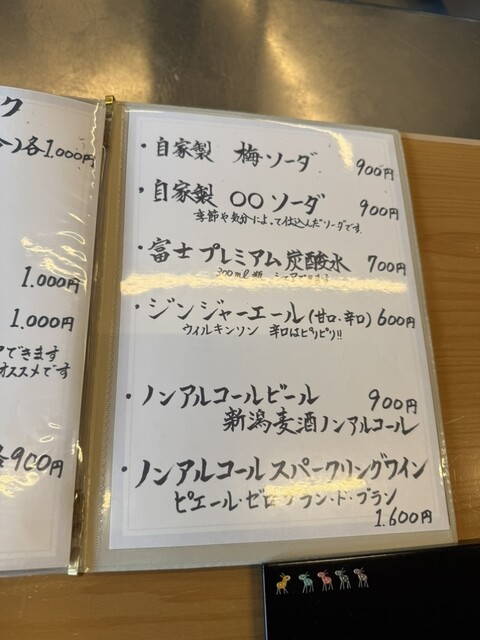 ク
各1.000円
1.000円
1.000円
できます
オススメです
900円
・自家製 梅ソーダ 900円
・自家製 〇〇ソーダ 900円
季節や気分によって仕込んだソーダです。
・富士プレミアム炭酸水 700円
・ジンジャーエール(甘口、辛口) 600円
ウィルキンソン 辛口はピリピリ!!
・ノンアルコールビール 900円
新潟麦酒ノンアルコール
・ノンアルコールスパークリングワイン
ピエール・ゼロ ブラン・ド・ブラン
1.600円